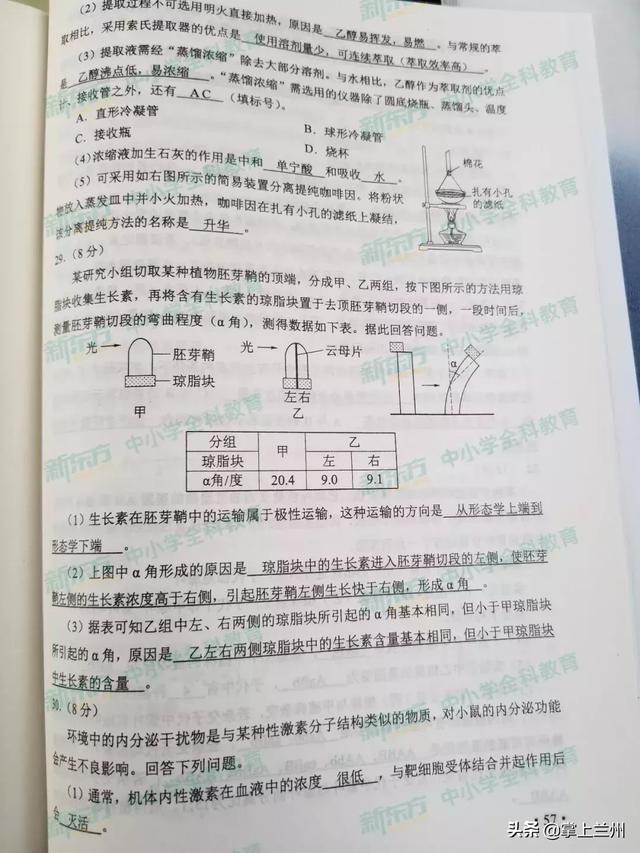 (2)提取过程不可选用明火直接加热,原因是 乙醇易挥发,易燃 。与常规的萃
取相比,采用索氏提取器的优点是 使用溶剂量少,可连续萃取(萃取效率高) 。
(3)提取液需经“蒸馏浓缩”除去大部分溶剂。与水相比,乙醇作为萃取剂的优点
是 乙醇沸点低,易浓缩 。“蒸馏浓缩”需选用的仪器除了圆底烧瓶、蒸馏头、温度
计、接收管之外,还有 AC (填标号)。
A. 直形冷凝管
B. 球形冷凝管
C. 接收瓶
D. 烧杯
(4)浓缩液加生石灰的作用是中和 单宁酸 和吸收 水 。
(5)可采用如右图所示的简易装置分离提纯咖啡因。将粉状
物放入蒸发皿中并小火加热,咖啡因在扎有小孔的滤纸上凝结,
该分离提纯方法的名称是 升华 。
棉花
扎有小孔
的滤纸
29.(8分)
某研究小组切取某种植物胚芽鞘的顶端,分成甲、乙两组,按下图所示的方法用琼
脂块收集生长素,再将含有生长素的琼脂块置于去顶胚芽鞘切段的一侧,一段时间后,
测量胚芽鞘切段的弯曲程度(α角),测得数据如下表。据此回答问题。
光
胚芽鞘
琼脂块
甲
光
云母片
左右
乙
α
分组 甲 乙
琼脂块 左 右
α角/度 20.4 9.0 9.1
(1)生长素在胚芽鞘中的运输属于极性运输,这种运输的方向是 从形态学上端到
形态学下端 。
(2)上图中α角形成的原因是 琼脂块中的生长素进入胚芽鞘切段的左侧,使胚芽
鞘左侧的生长素浓度高于右侧,引起胚芽鞘左侧生长快于右侧,形成α角 。
(3)据表可知乙组中左、右两侧的琼脂块所引起的α角基本相同,但小于甲琼脂块
所引起的α角,原因是 乙左右两侧琼脂块中的生长素含量基本相同,但小于甲琼脂块
中生长素的含量 。
30.(8分)
环境中的内分泌干扰物是与某种性激素分子结构类似的物质,对小鼠的内分泌功能
会产生不良影响。回答下列问题。
(1)通常,机体内性激素在血液中的浓度 很低 ,与靶细胞受体结合并起作用后
会 灭活 。
·57·
新东方 中小学全科教育
头条 @掌上兰州